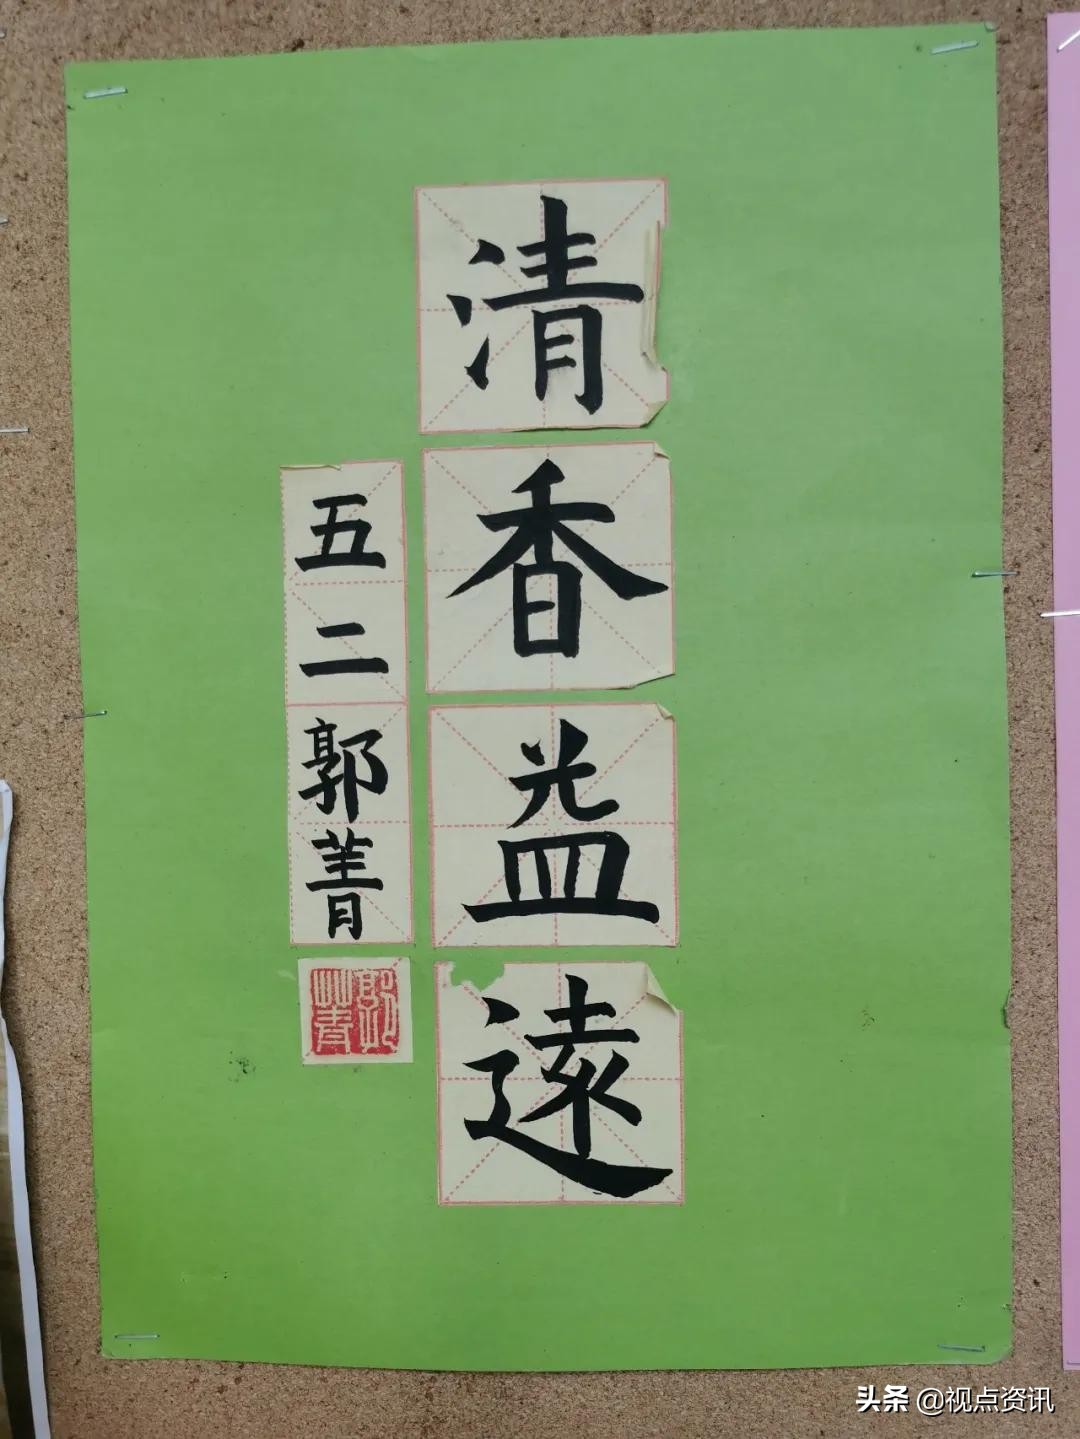 清香益遠
五二郭菁
郭菁
头条 @视点资讯